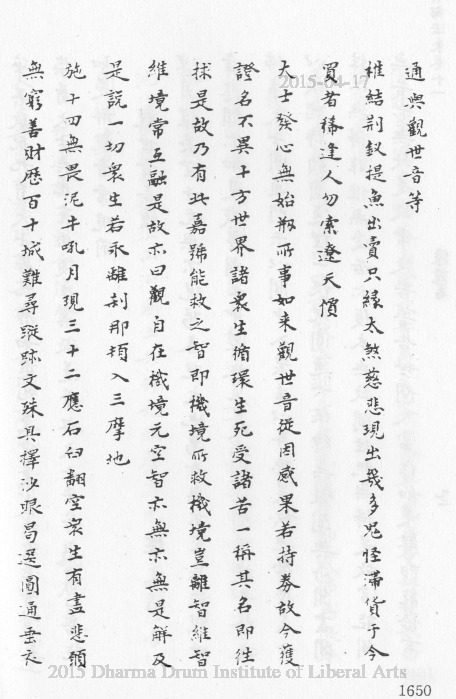 通與觀世音等
稚結荊釵提魚出賣只緣太煞慈悲現出幾多鬼怪滯貨于今
買者稀逢人勿索遼天價
大士發心無始刼所事如来觀世音從因感果若持券故今獲
證名不異十方世界諸衆生循環生死受諸苦一稱其名即往
捄是故乃有此嘉號能救之智即機境所救機境豈離智維智
維境常互融是故亦曰觀自在機境元空智亦無亦無是解及
是說一切衆生若永離刹那頓入三摩地
施十四無畏泥牛吼月現三十二應石臼翻空衆生有盡悲願
無窮善財歷百十城難尋蹤跡文殊具擇沙眼曷選圓通垂衣
2015-04-17
2015 Dharma Drum Institute of Liberal Arts
1650